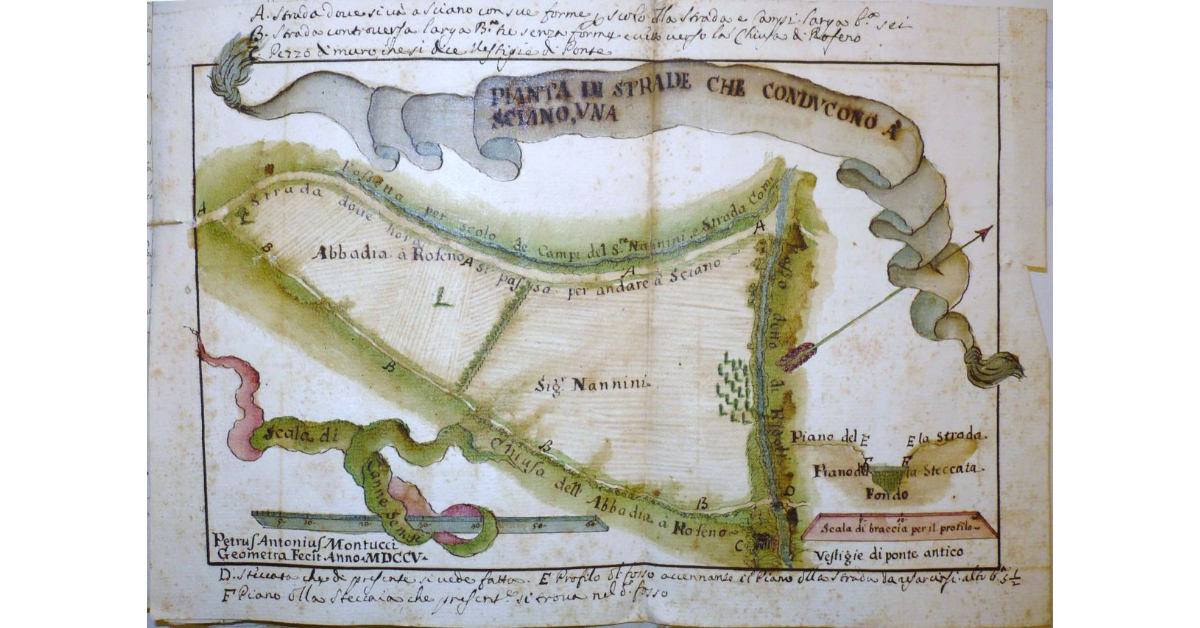 A. Strada doue si uà a Sciano con sue forme p scolo dlla strada e campi. larga b.ª sei
B. Strada controuersa larga B.ª tre senza forme e uia uerso la Chiusa di Rofeno
C. Pezzo di muro che si dice Vestigie di Ponte
PIANTA DI STRADE CHE CONDVCONO À
SCIANO, VNA
Fossetta per scolo de Campi del S.re Nannini e Strada Com
A Strada doue hora si passa per andare à Sciano
A
A
A
B
Abbadia à Rofeno
L
Fosso detto di
Sig.r Nannini
B
B
B
Chiusa dell Abbadia à Rofeno
D
C
Scala di
Canne Senesi
Piano del E E la Strada.
Piano d F F la Steccata.
Fondo
Scala di braccia per il profilo
Vestigie di ponte antico
Petrus Antonius Montucci
Geometra Fecit Anno MDCCV.
D. Steccata che de presente si uede fatta. E Profilo dl fosso accennante il Piano dlla Strada da alto b.ª 5 1/2
F Piano dlla Steccaia che present.e si troua nel d.º fosso